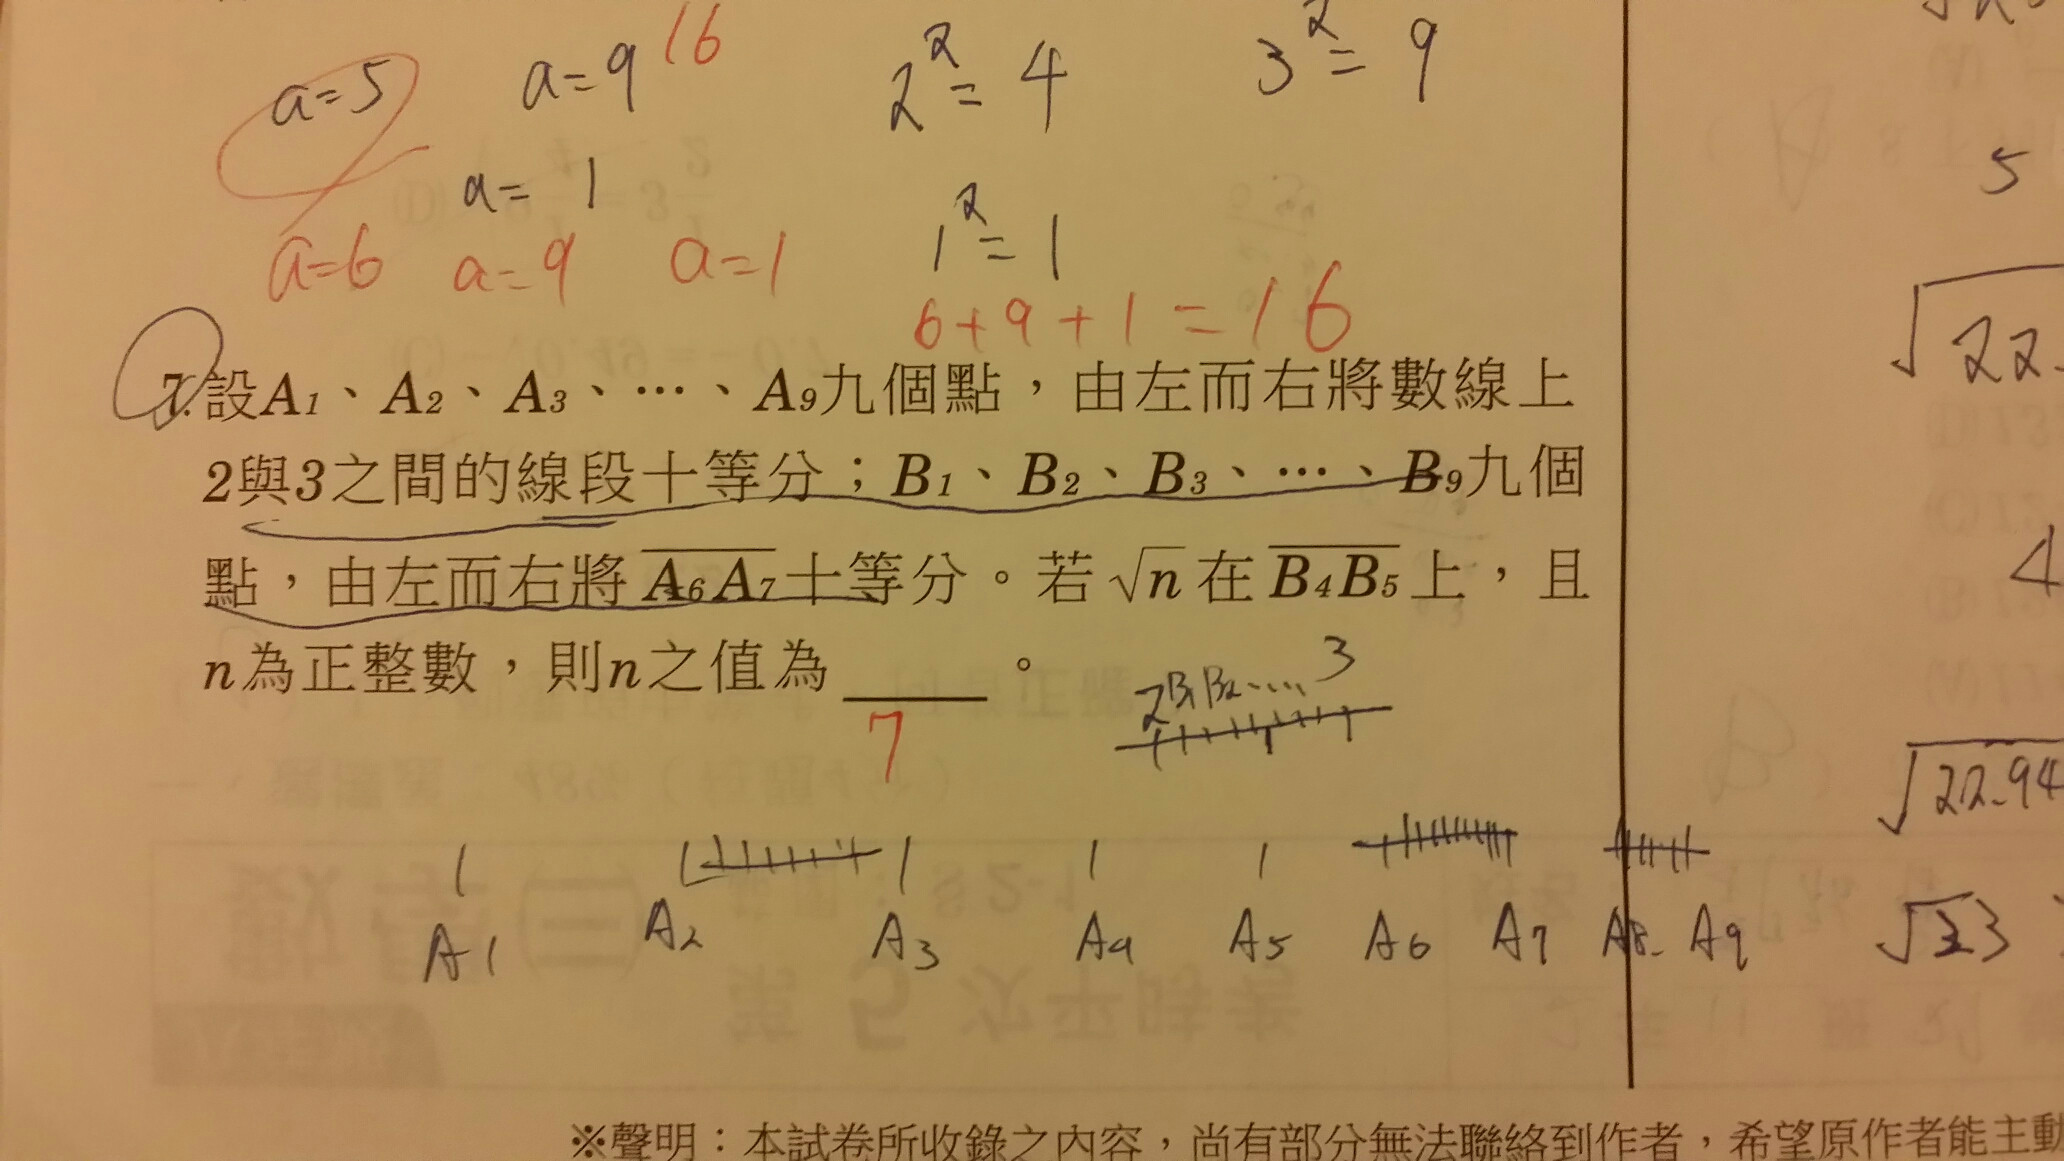 a=5 a=9 16 2²=4 3²=9
a=1 1²=1 5
a=6 a=9 a=1
6+9+1=16
7.設A1、A2、A3、⋯、A9九個點，由左而右將數線上
2與3之間的線段十等分；B1、B2、B3、⋯、B9九個
點，由左而右將A6A7十等分。若√n在B4B5上，且
n為正整數，則n之值為______。
7
2 B1 B2.... 3
A1 A2 A3 A4 A5 A6 A7 A8 A9
√22.
4
√22.94
√23
※聲明：本試卷所收錄之內容，尚有部分無法聯絡到作者，希望原作者能主動